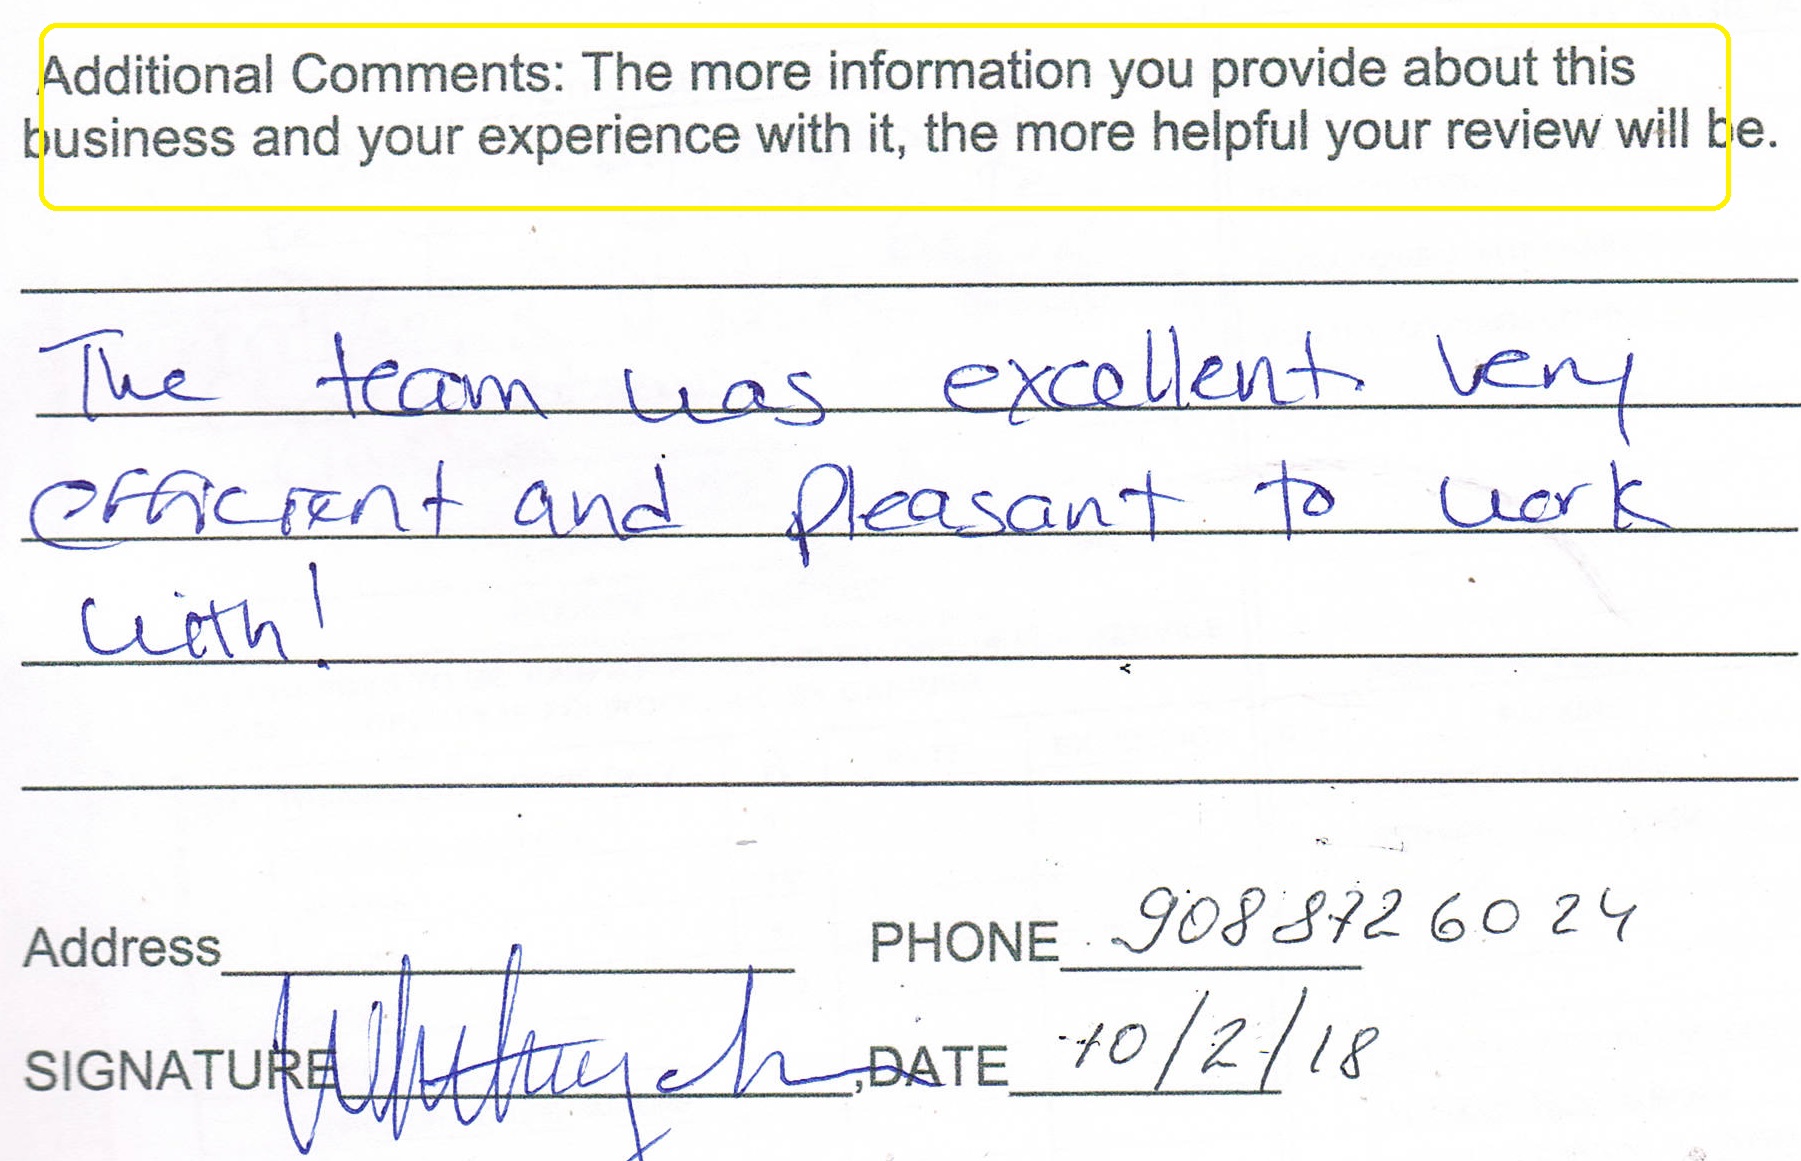 Additional Comments: The more information you provide about this
business and your experience with it, the more helpful your review will be.
The team was excellent. Very
efficient and pleasant to work
with!
Address PHONE 908 872 6024
SIGNATURE ,DATE 10/2/18